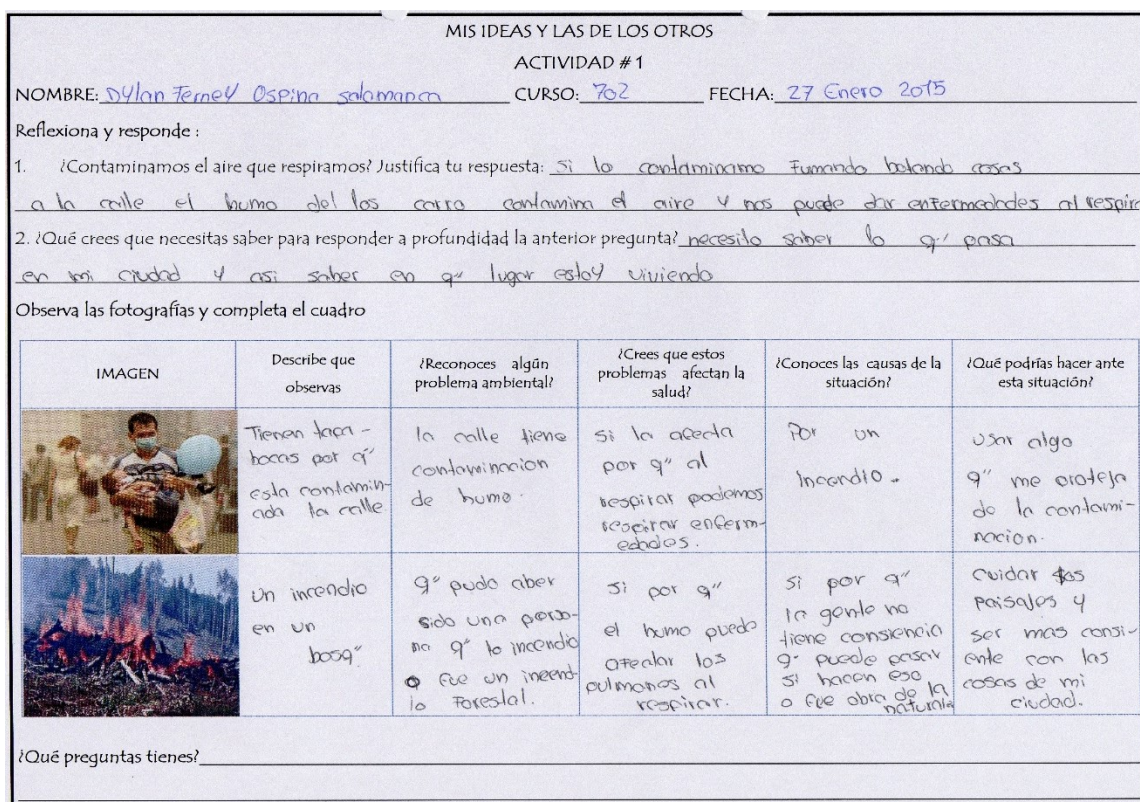 MIS IDEAS Y LAS DE LOS OTROS
ACTIVIDAD # 1
NOMBRE: Dylan Ferney Ospina salamanca CURSO: 702 FECHA: 27 Enero 2015
Reflexiona y responde :
1. ¿Contaminamos el aire que respiramos? Justifica tu respuesta: Si lo contaminamo Fumando botando cosas
a la calle el humo del los carro contamina el aire y nos puede dar enfermedades al respirar
2. ¿Qué crees que necesitas saber para responder a profundidad la anterior pregunta? necesito saber lo q" pasa
en mi ciudad y asi saber en q" lugar estoy viviendo
Observa las fotografías y completa el cuadro
IMAGEN
Describe que
observas
¿Reconoces algún
problema ambiental?
¿Crees que estos
problemas afectan la
salud?
¿Conoces las causas de la
situación?
¿Qué podrías hacer ante
esta situación?
Tienen tapa-
bocas por q"
esta contamin-
ada la calle
la calle tiene
contaminacion
de humo.
Si la afecta
por q" al
respirar podemos
respirar enferm-
edades.
Por un
Incendio.
usar algo
q" me proteja
de la contami-
nacion.
un incendio
en un
bosq"
q" pudo aber
sido una perso-
na q" lo incendio
o fue un incend-
io Forestal.
Si por q"
el humo puede
afectar los
pulmones al
respirar.
si por q"
la gente no
tiene consiencia
q" puede pasar
si hacen eso
o fue obra de la
naturale
cuidar los
paisajes y
ser mas consi-
ente con las
cosas de mi
ciudad.
¿Qué preguntas tienes?